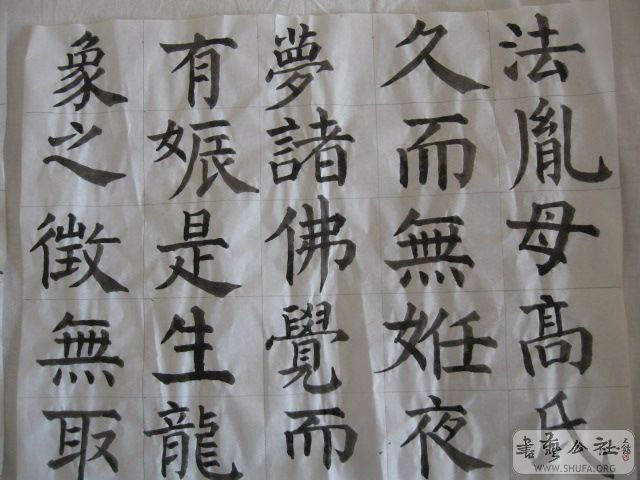 法胤母髙氏
久而無姙夜
夢諸佛覺而
有娠是生龍
象之徵無取
書藝公社
WWW.SHUFA.ORG